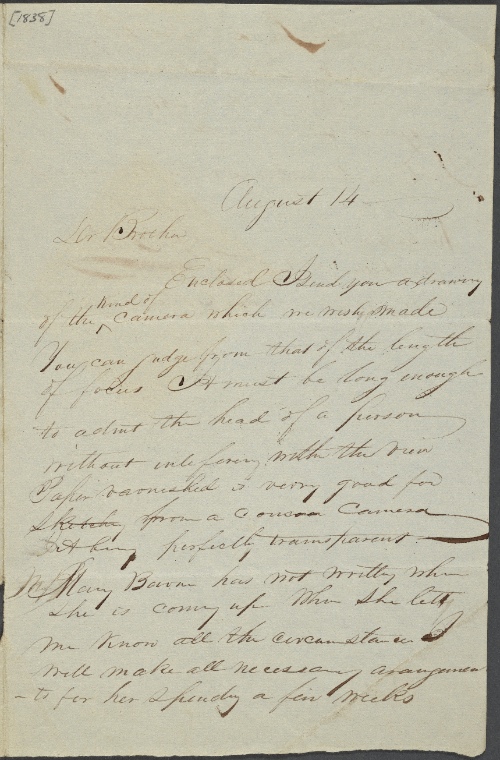 [1838]
August 14
Dr Brother
Enclosed I send you a drawing
kind of
of the camera which we wish made
You can judge from that of the length
of focus It must be long enough
to admit the head of a person
without interfering with the view
Paper varnished is verry good for
sketches from a camera
It being perfectly transparent
Mary has not written when
she is coming up When she lets
me know all the circumstances I
will make all necessary arangemen
-ts for her spending a few weeks